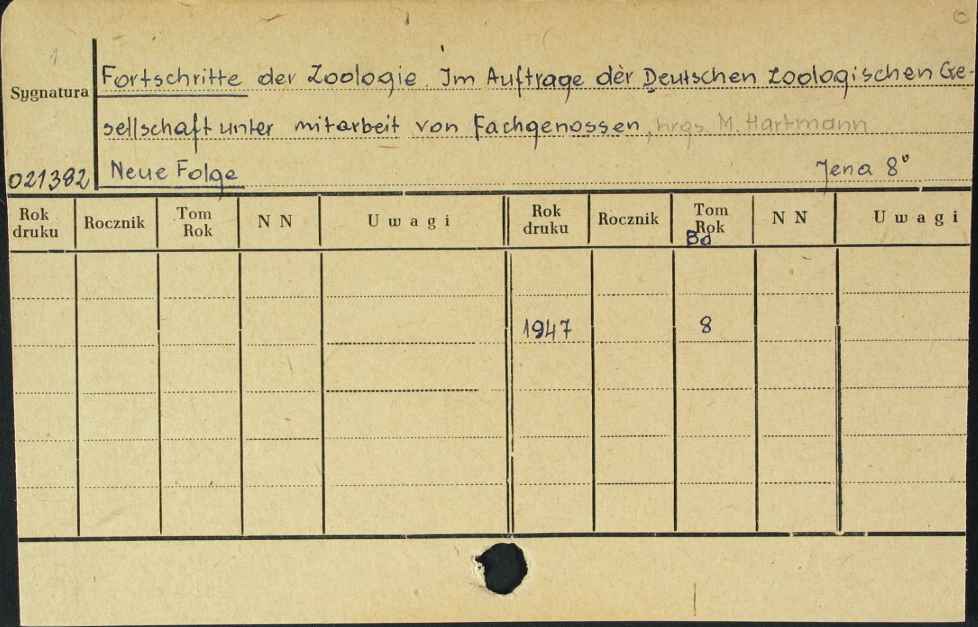 Sygnatura
Fortschritte der Zoologie. Im Auftrage der Deutschen Zoologischen Ge-
sellschaft unter mitarbeit von Fachgenossen, hrgs. M. Hartmann
021382 Neue Folge Jena 8°
Rok druku Rocznik Tom Rok N N Uwagi Rok druku Rocznik Tom Rok N N Uwagi
Bd
1947 8